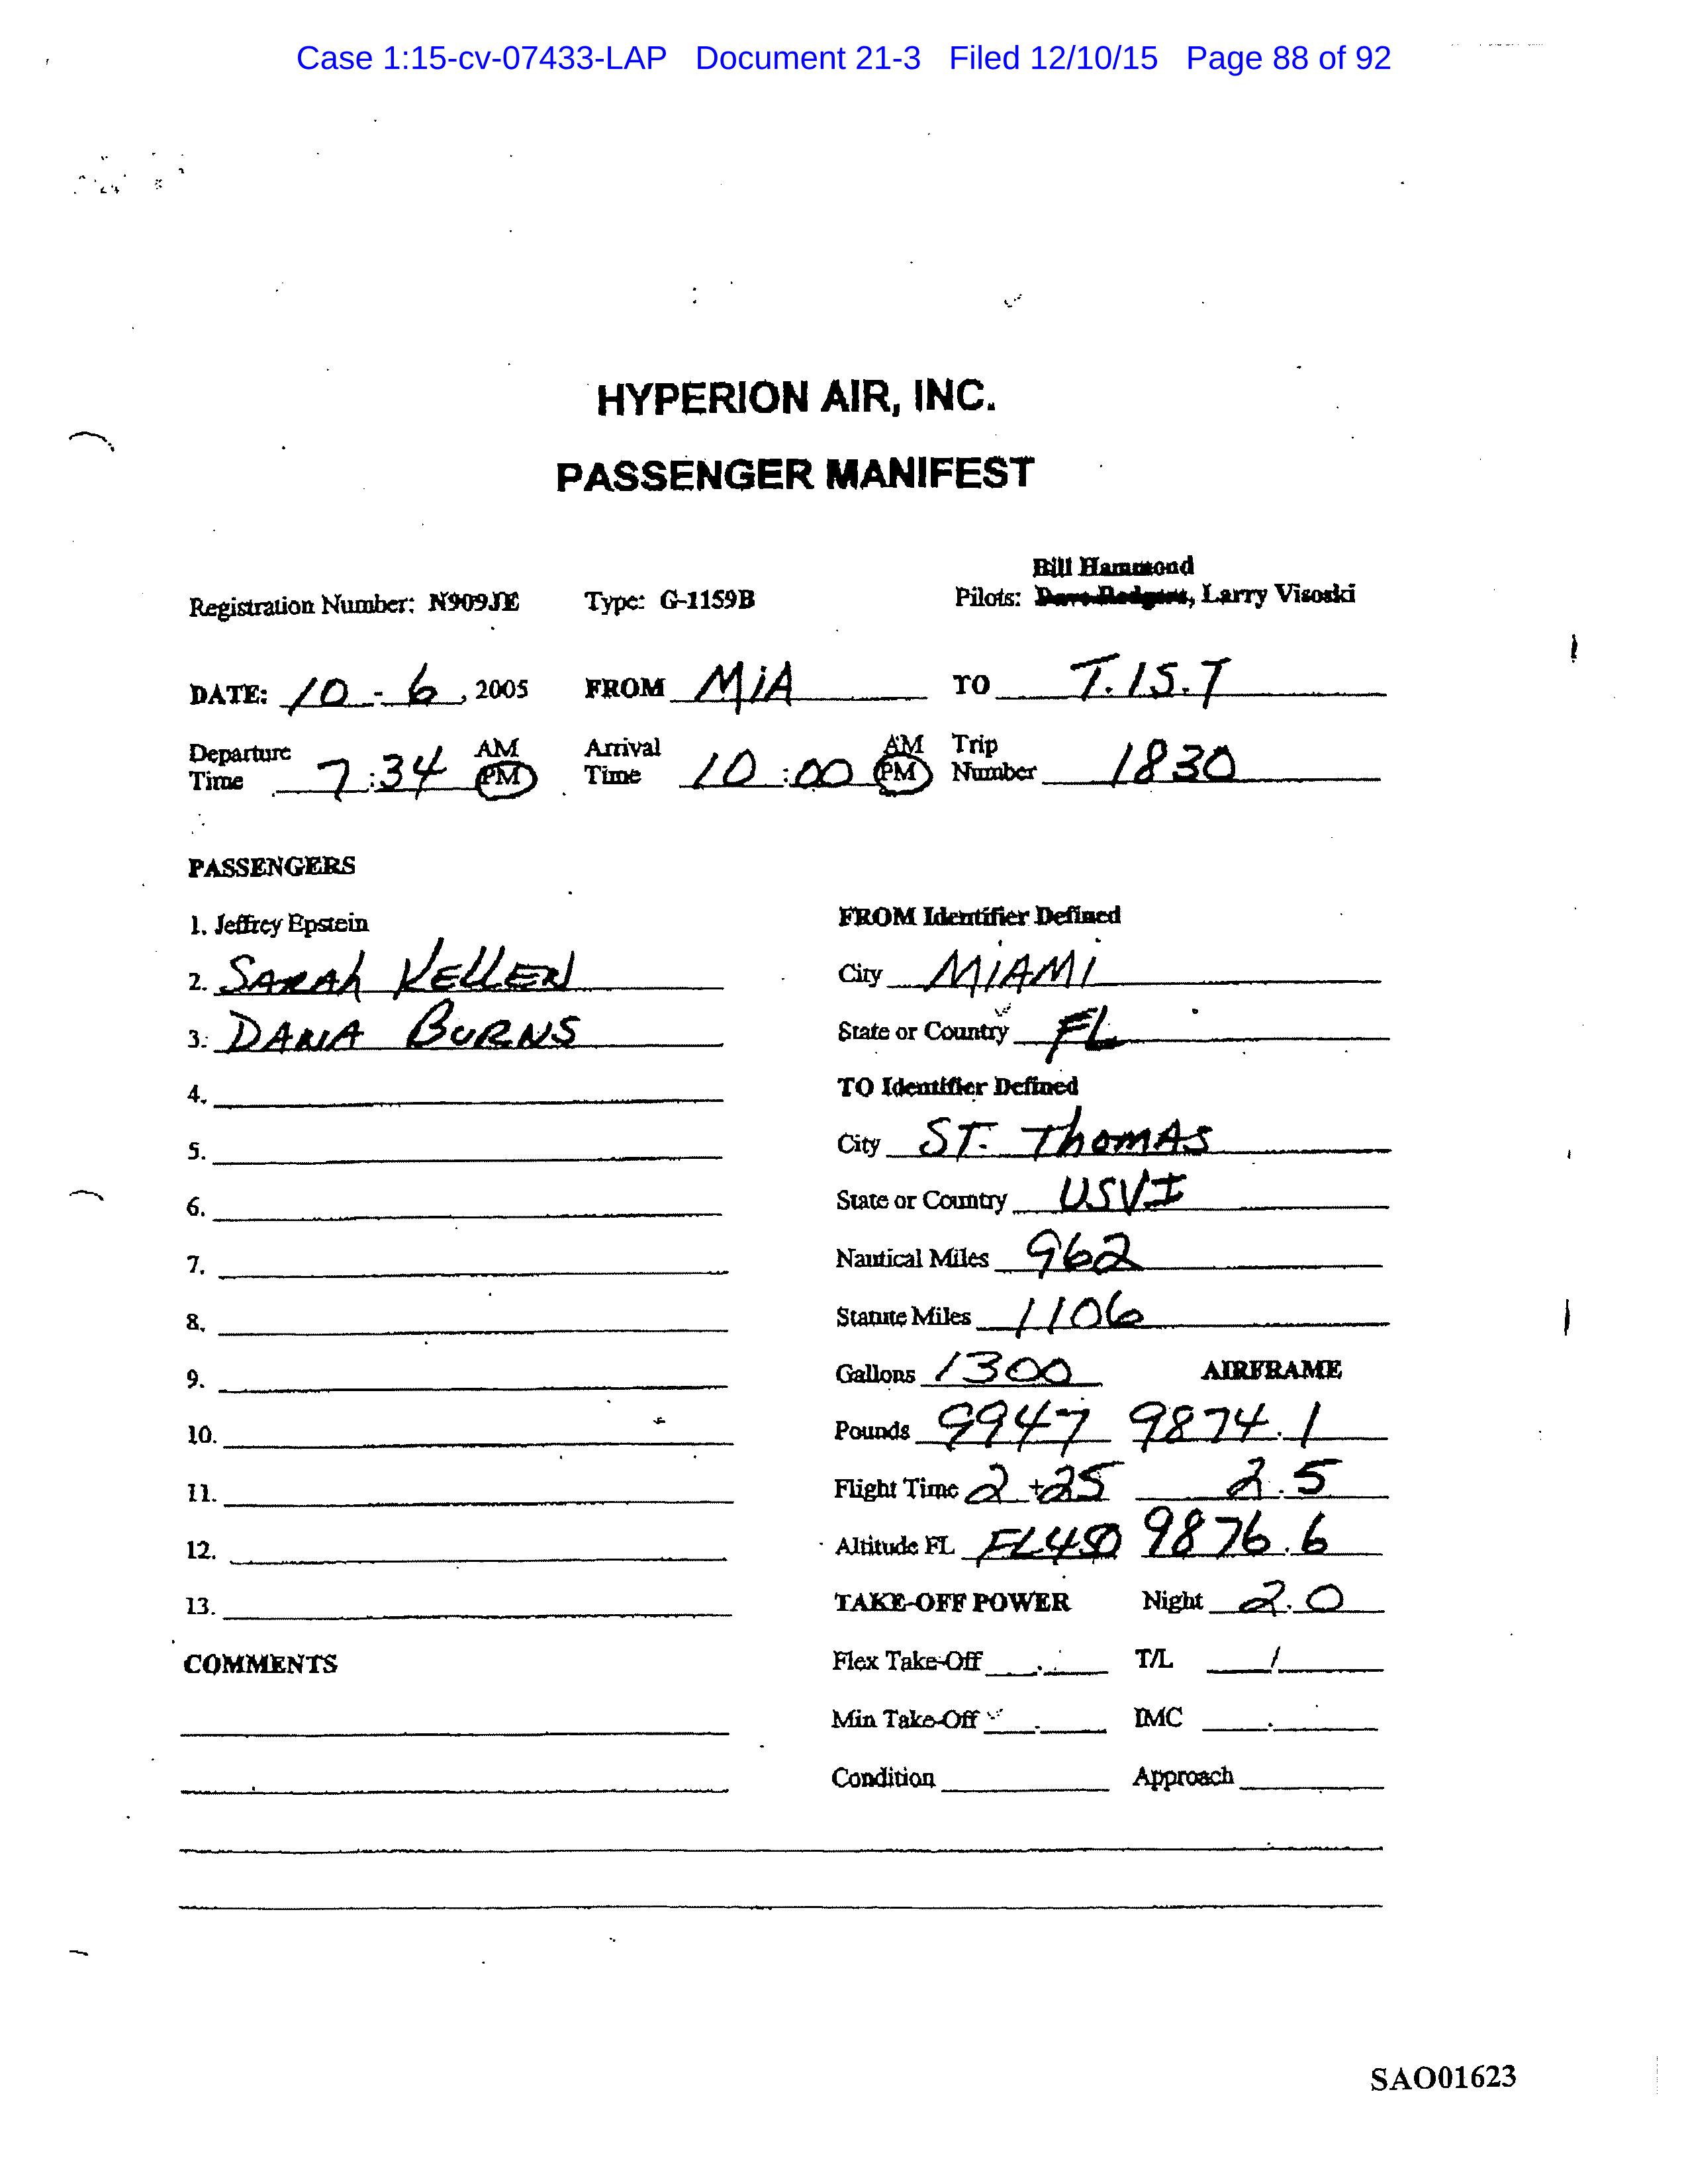 Case 1:15-cv-07433-LAP Document 21-3 Filed 12/10/15 Page 88 of 92
HYPERION AIR, INC.
PASSENGER MANIFEST
Bill Hammond
Registration Number: N909JE Type: G-1159B Pilots: Dave Rodgers, Larry Visoski
DATE: 10 - 6, 2005 FROM MiA TO T.IS.T
Departure Time 7:34 AM PM Arrival Time 10:00 AM PM Trip Number 1830
PASSENGERS
1. Jeffrey Epstein
2. SARAh KELLEN
3. DANA BURNS
4.
5.
6.
7.
8.
9.
10.
11.
12.
13.
COMMENTS
FROM Identifier Defined
City MiAMi
State or Country FL
TO Identifier Defined
City ST. ThomAS
State or Country USVI
Nautical Miles 962
Statute Miles 1106
Gallons 1300 AIRFRAME
Pounds 9947 9874.1
Flight Time 2+25 2.5
Altitude FL 9876.6
TAKE-OFF POWER Night 2.0
Flex Take-Off T/L /
Min Take-Off IMC
Condition Approach
SAO01623